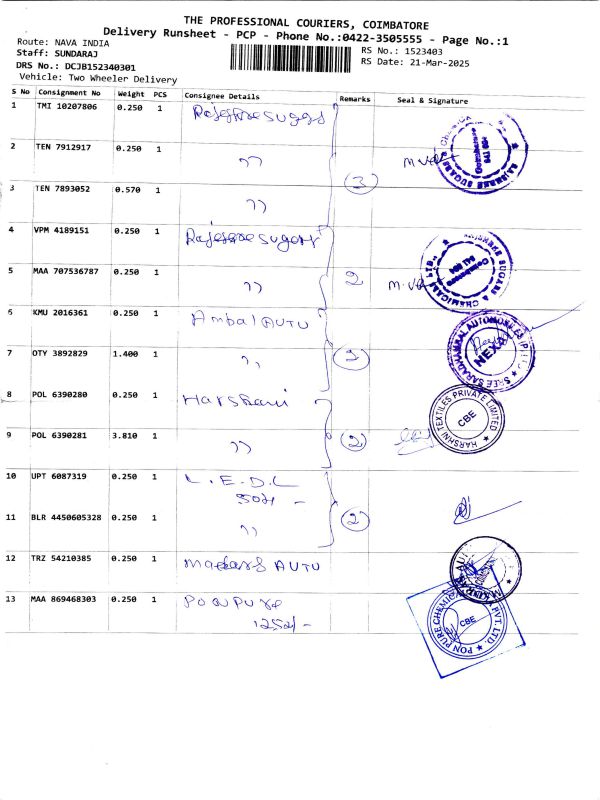 THE PROFESSIONAL COURIERS, COIMBATORE
Delivery Runsheet - PCP - Phone No.:0422-3505555 - Page No.:1
Route: NAVA INDIA
Staff: SUNDARAJ
DRS No.: DCJB152340301
Vehicle: Two Wheeler Delivery
RS No.: 1523403
RS Date: 21-Mar-2025
S No Consignment No Weight PCS Consignee Details Remarks Seal & Signature
1 TMI 10207806 0.250 1
2 TEN 7912917 0.250 1 ,,
3 TEN 7893052 0.570 1 ,, 3
4 VPM 4189151 0.250 1
5 MAA 707536787 0.250 1 ,, 2
6 KMU 2016361 0.250 1 Ambal AUTO
7 OTY 3892829 1.400 1 ,, 2
8 POL 6390280 0.250 1 Harshani
9 POL 6390281 3.810 1 ,, 2
10 UPT 6087319 0.250 1 L.E.D.L
11 BLR 4450605328 0.250 1 ,, 2
12 TRZ 54210385 0.250 1 AUTO
13 MAA 869468303 0.250 1
RAJSHREE SUGARS & CHEMICALS LTD.,
Coimbatore
641 004
SREE SARADHAMBAL AUTOMOBILES (P) LTD
NEXA
HARSHNI TEXTILES PRIVATE LIMITED
CBE
PON PURE CHEMICAL PVT. LTD.
CBE